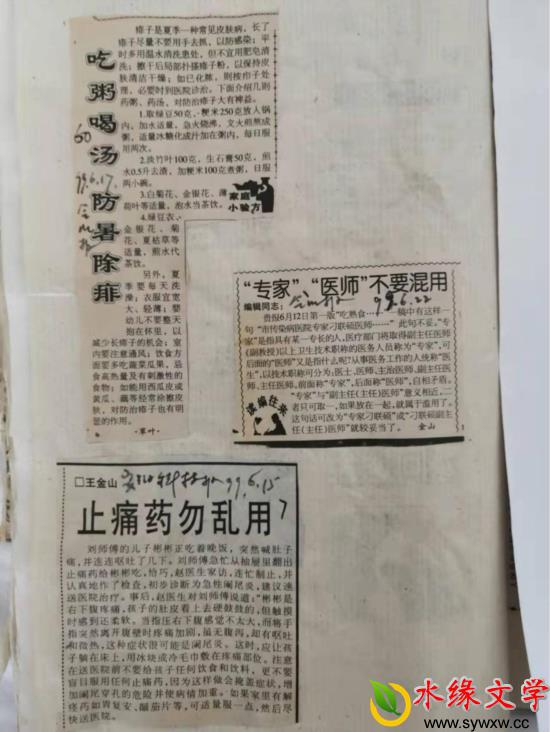 吃粥喝汤防暑除痱
痱子是夏季一种常见皮肤病,长了
痱子尽量不要用手去抓,以防感染;平
时多用温水清洗患处,但不宜用肥皂清
洗;擦干后局部扑搽痱子粉,以保持皮
肤清洁干燥;如已化脓,则按疖子处
理,必要时到医院诊治。下面介绍几则
药粥、药汤,对防治痱子大有裨益。
1.取绿豆50克,粳米250克放入锅
内,加水适量,急火烧沸,文火煎熬成
粥,适量冰糖化成汁加在粥内,每日服
用两次。
2.淡竹叶100克,生石膏50克,煎
水0.5升去渣,加粳米100克煮粥,日服
两小碗。
3.白菊花、金银花、薄
荷叶等适量,泡水当茶饮。
4.绿豆衣、
金银花、菊
花、夏枯草等
适量,煎水代
茶饮。
另外,夏
季要每天洗
澡;衣服宜宽
大、轻薄;婴
幼儿不要整天
抱在怀里,以
减少长痱子的机会;室
内要注意通风;饮食方
面要多吃蔬菜瓜果,忌
食高热量及有刺激性的
食物;如能用西瓜皮或
黄瓜、藕等经常涂擦皮
肤,对防治痱子也有明
显的作用。
·草叶·
家庭
小验方
60
99.6.17.
“专家”、“医师”不要混用
99.6.22
编辑同志:
贵报6月12日第一版“吃熟食……”稿中有这样一
句“市传染病医院专家刁联硕医师……”此句不妥。“专
家”是指具有某一专长的人,医疗部门将取得副主任医师
(副教授)以上卫生技术职称的医务人员称为“专家”,可
后面的“医师”又是指什么呢?从事医务工作的人统称“医
生”,以技术职称可分为:医士,医师、主治医师、副主任医
师、主任医师,前面称“专家”,后面称“医师”,自相矛盾。
“专家”与“副主任(主任)医师”意义相近,二
者只可取一,如果放在一起,就属于滥用了。
这句话可改为“专家刁联硕”或“刁联硕副主
任(主任)医师”就较妥当了。 金山
读编往来
□王金山
99.6.15
止痛药勿乱用
7
刘师傅的儿子彬彬正吃着晚饭,突然喊肚子
痛,并连连呕吐了几下。刘师傅急忙从抽屉里翻出
止痛药给彬彬吃,恰巧,赵医生家访,连忙制止,并
认真地作了检查,初步诊断为急性阑尾炎,建议速
送医院治疗。事后,赵医生对刘师傅说道:“彬彬是
右下腹疼痛,孩子的肚皮看上去硬鼓鼓的,但触摸
时感到还柔软。当指压右下腹感觉不太大,而将手
指突然离开腹壁时疼痛加剧,虽无腹泻,却有呕吐
和微热,这种症状很可能是阑尾炎。这时,应让孩
子躺在床上,用冰块或冷毛巾敷在疼痛部位。注意
在送医院前不要给孩子任何饮食和饮料,更不要
盲目服用任何止痛药,因为这样做会掩盖症状,增
加阑尾穿孔的危险并使病情加重。如果家里有解
痉药如胃复安、颠茄片等,可适量服一点,然后尽
快送医院。
水缘文学
www.sywxw.cc